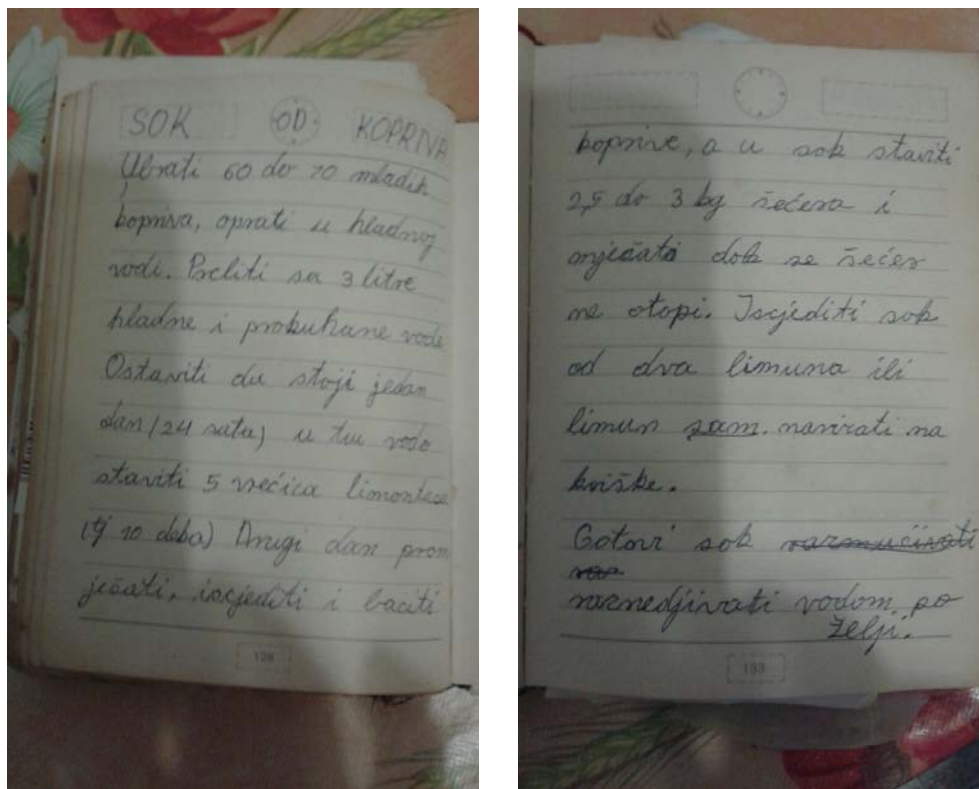 SOK OD KOPRIVA
Ubrati 60 do 70 mladih
kopriva, oprati u hladnoj
vodi. Preliti sa 3 litre
hladne i prokuhane vode
Ostaviti da stoji jedan
dan (24 sata) u tu vodo
staviti 5 vrećica limontosa
(tj 10 deka) Drugi dan prom
ješati, iscjediti i baciti
128
koprive, a u sok staviti
2,5 do 3 kg šećera i
mješati dok se šećer
ne otopi. Iscjediti sok
od dva limuna ili
limun sam. narezati na
kriške.
Gotovi sok razmućivati
raz
razredjivati vodom po
želji.
133